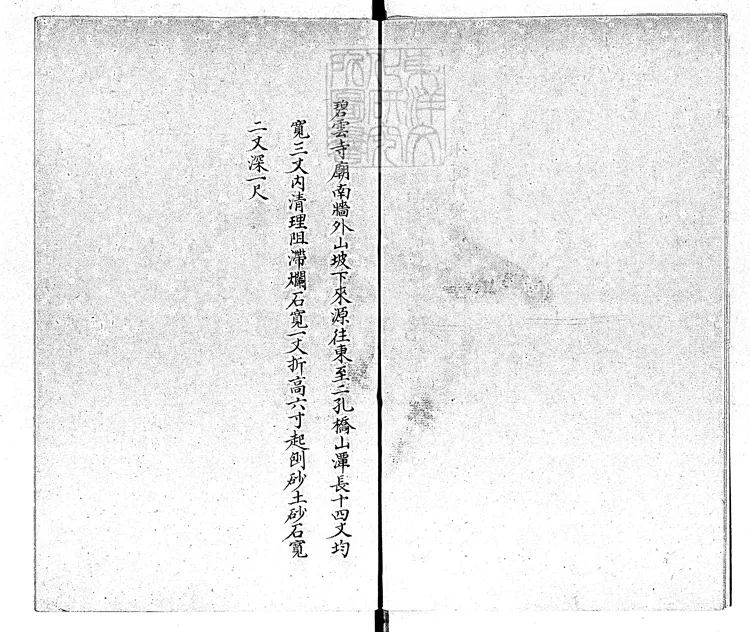 碧雲寺廟南牆外山坡下來源往東至二孔橋山潭長十四丈均
寬三丈內清理阻滯爛石寬一丈折高六寸起刨砂土砂石寬
二丈深一尺
東洋文
化研究
所圖書